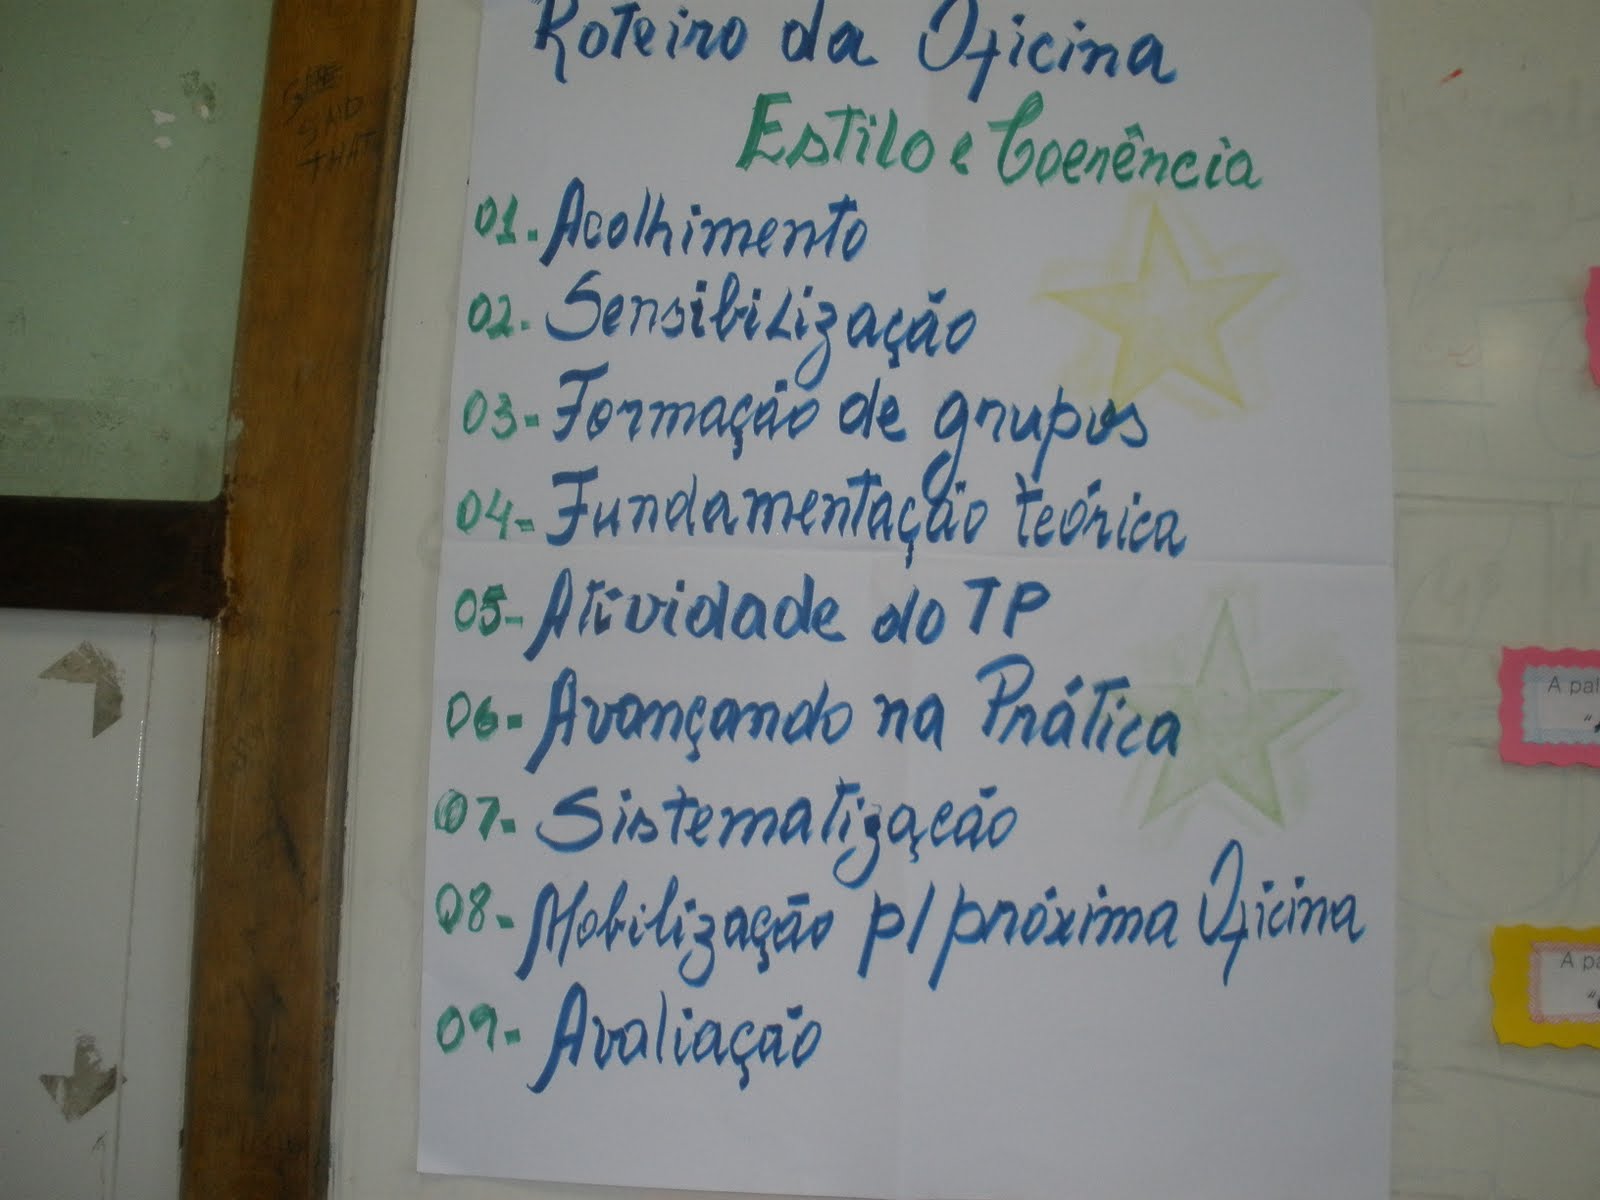 Roteiro da Oficina
Estilo e Coerência
01. Acolhimento
02. Sensibilização
03- Formação de grupos
04- Fundamentação teórica
05- Atividade do TP
06- Avançando na Prática
07- Sistematização
08- Mobilização p/ próxima Oficina
09- Avaliação
SHE
SAID
THAT
A pal
A pa